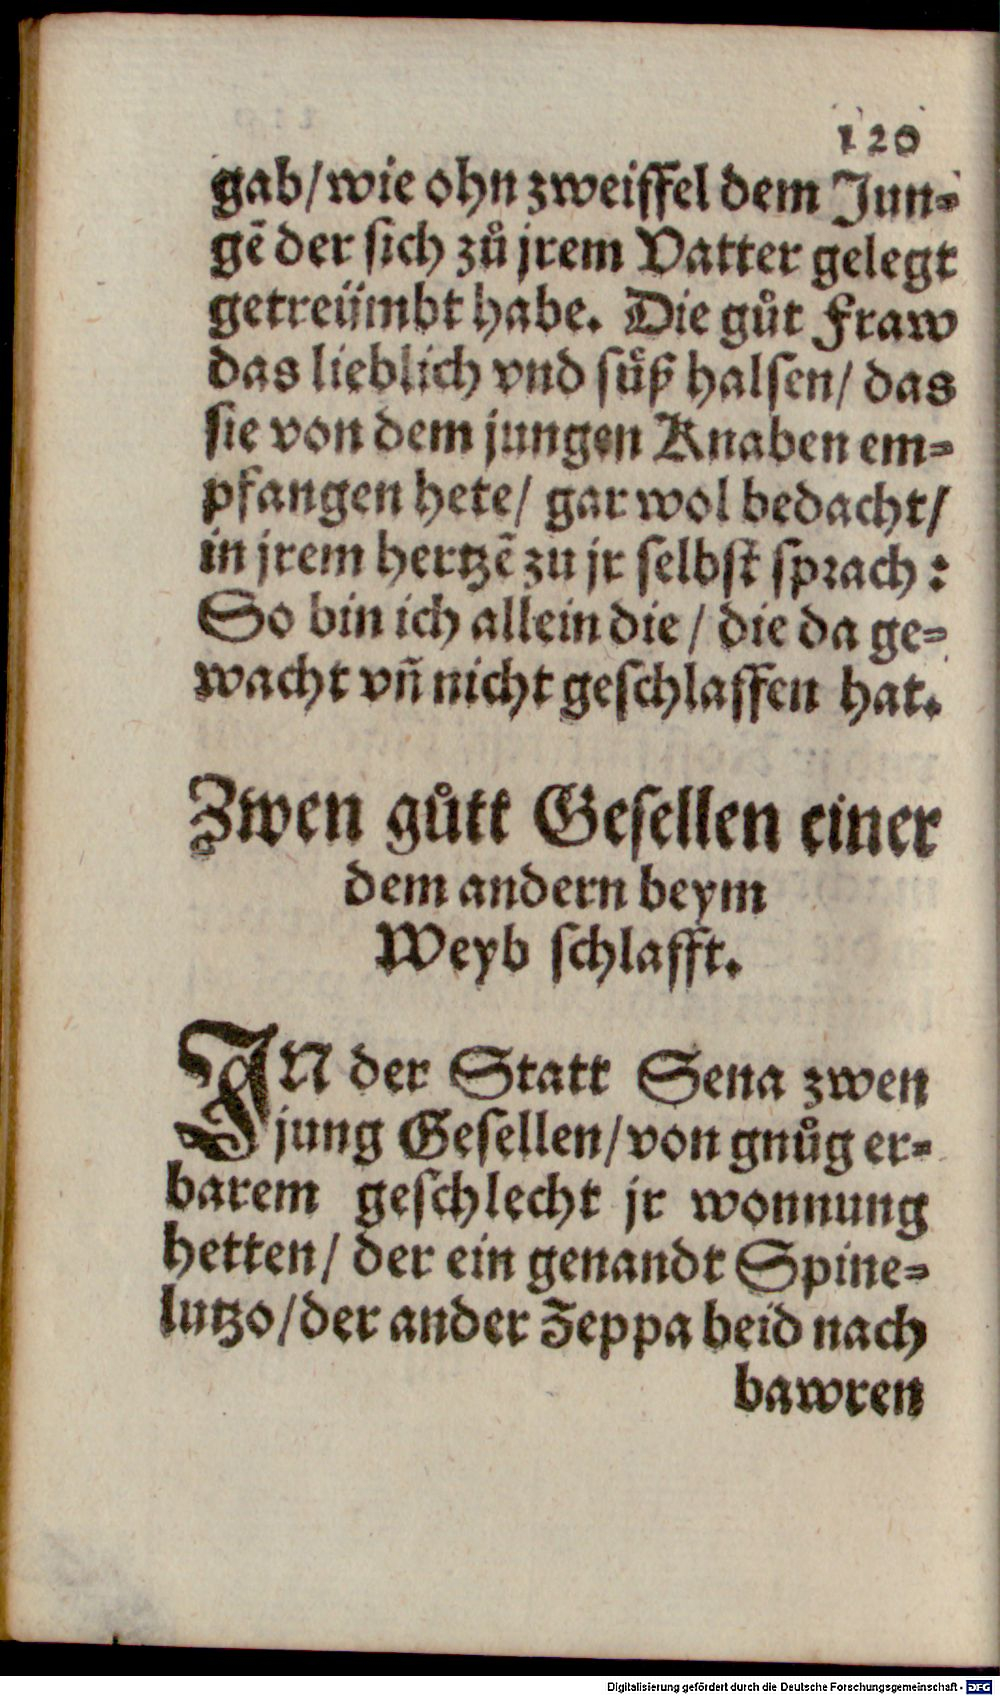 120
gab/ wie ohn zweiffel dem Jun-
gē der sich zů jrem Vatter gelegt
getreümbt habe. Die gůt Fraw
das lieblich vnd sůß halsen/ das
sie von dem jungen Knaben em-
pfangen hete/ gar wol bedacht/
in jrem hertzē zu jr selbst sprach:
So bin ich allein die/ die da ge-
wacht vñ nicht geschlaffen hat.
Zwen gůtt Gesellen einer
dem andern beym
Weyb schlafft.
IN der Statt Sena zwen
jung Gesellen/ von gnůg er-
barem geschlecht jr wonnung
hetten/ der ein genandt Spine-
lutzo/ der ander Zeppa beid nach
bawren
Digitalisierung gefördert durch die Deutsche Forschungsgemeinschaft - DFG